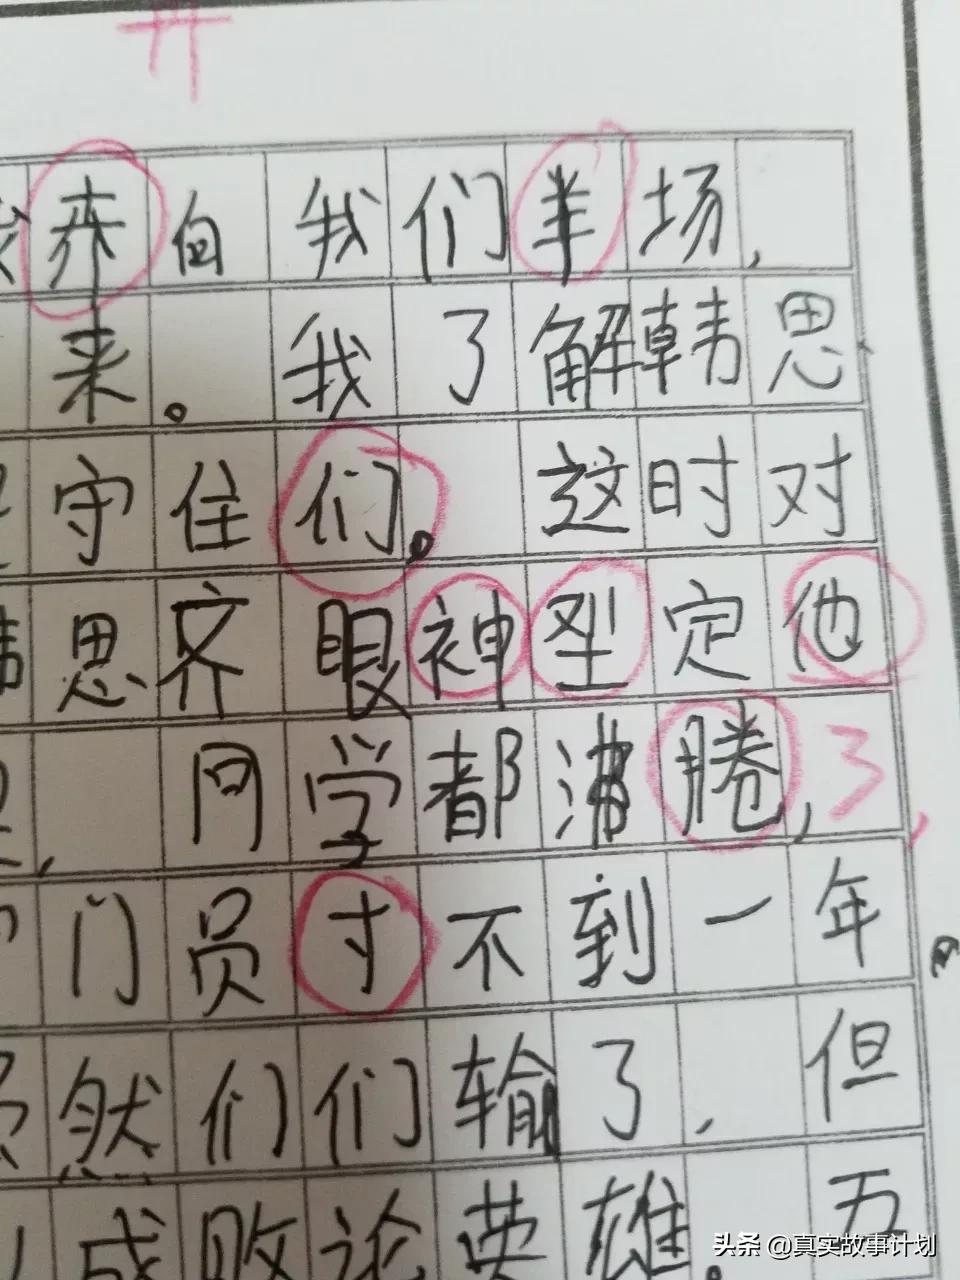 开
奔向我们半场,
来。我了解韩思
守住们。 这时对
思齐眼神坚定他
, 同学都沸腾,了,
门员寸不到一年
然们们输了,但
成败论英雄。五
头条 @真实故事计划